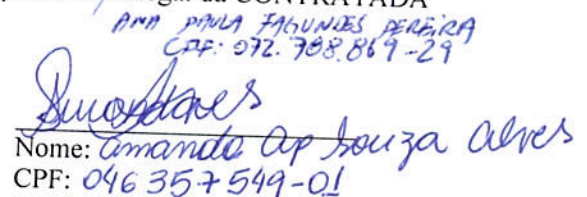 legal da CONTRATADA
ANA PAULA FAGUNDES PEREIRA
CPF: 072.798.869-29
Nome: Amanda Ap Souza Alves
CPF: 046 357 549-01